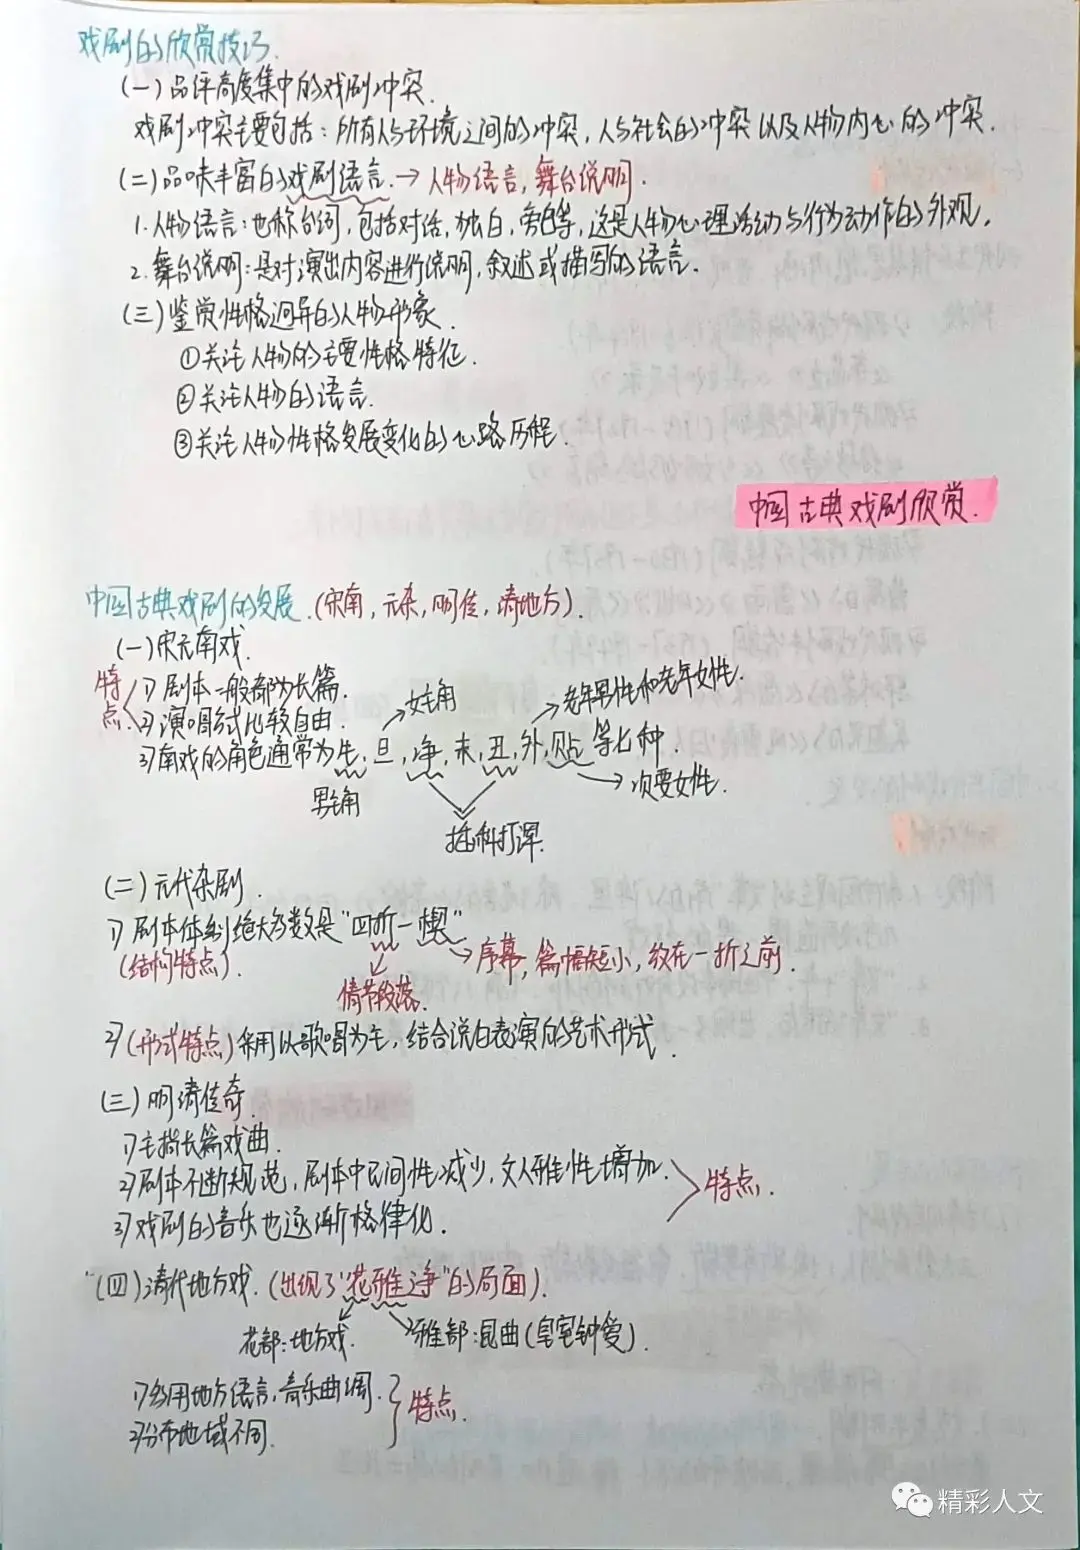 戏剧的欣赏技巧.
(一)品评高度集中的戏剧冲突.
戏剧冲突主要包括:所有人与环境之间的冲突,人与社会的冲突以及人物内心的冲突.
(二)品味丰富的戏剧语言.→人物语言,舞台说明.
1.人物语言:也称台词,包括对话,独白,旁白等,这是人物心理活动与行为动作的外观.
2.舞台说明:是对演出内容进行说明,叙述或描写的语言.
(三)鉴赏性格迥异的人物形象.
①关注人物的主要性格特征.
②关注人物的语言.
③关注人物性格发展变化的心路历程.
中国古典戏剧欣赏.
中国古典戏剧的发展.(宋南,元杂,明传,清地方).
(一)宋元南戏.
特点
1)剧本一般都为长篇.
2)演唱方式比较自由.
女主角
老年男性和老年女性.
3)南戏的角色通常为生,旦,净,末,丑,外,贴等七种.
男主角
次要女性.
插科打诨.
(二)元代杂剧.
1)剧本体制绝大多数是"四折一楔"
(结构特点).
序幕,篇幅短小,放在一折之前.
情节段落.
2)(形式特点)采用以歌唱为主,结合说白表演的艺术形式.
(三)明清传奇.
1)主指长篇戏曲.
2)剧本不断规范,剧本中民间性减少,文人雅性增加.
特点.
3)戏剧的音乐也逐渐格律化.
(四)清代地方戏.(出现了"花雅之争"的局面).
花部:地方戏.
雅部:昆曲(皇室钟爱).
1)多用地方语言,音乐曲调.
特点.
2)分布地域不同.
精彩人文